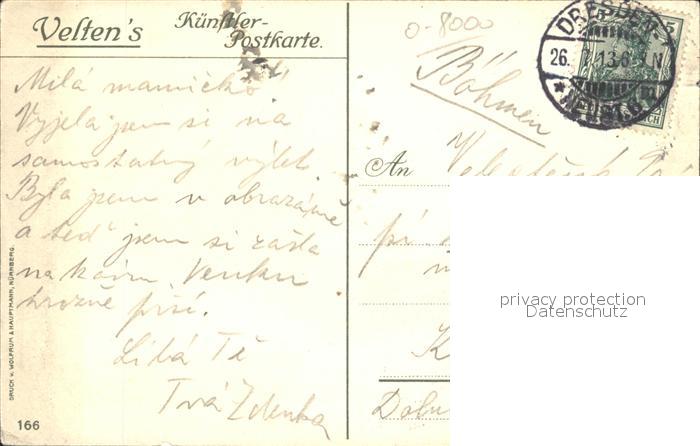 Velten's Künstler-
Postkarte.
0-8000
Böhmen
DRESDEN-
26. 7. 13. 6-7 N
* NEUST. 6.
5
REICH
Milá mamičko!
Vyjela jsem si na
samostatný výlet.
Byla jsem v obrazárně
a teď jsem si zašla
na kávu. Venku
hrozně prší.
Líbá Tě
Tvá Zdenka
An
K
Dolní
privacy protection
Datenschutz
DRUCK v. WOLFRUM & HAUPTMANN, NÜRNBERG.
166